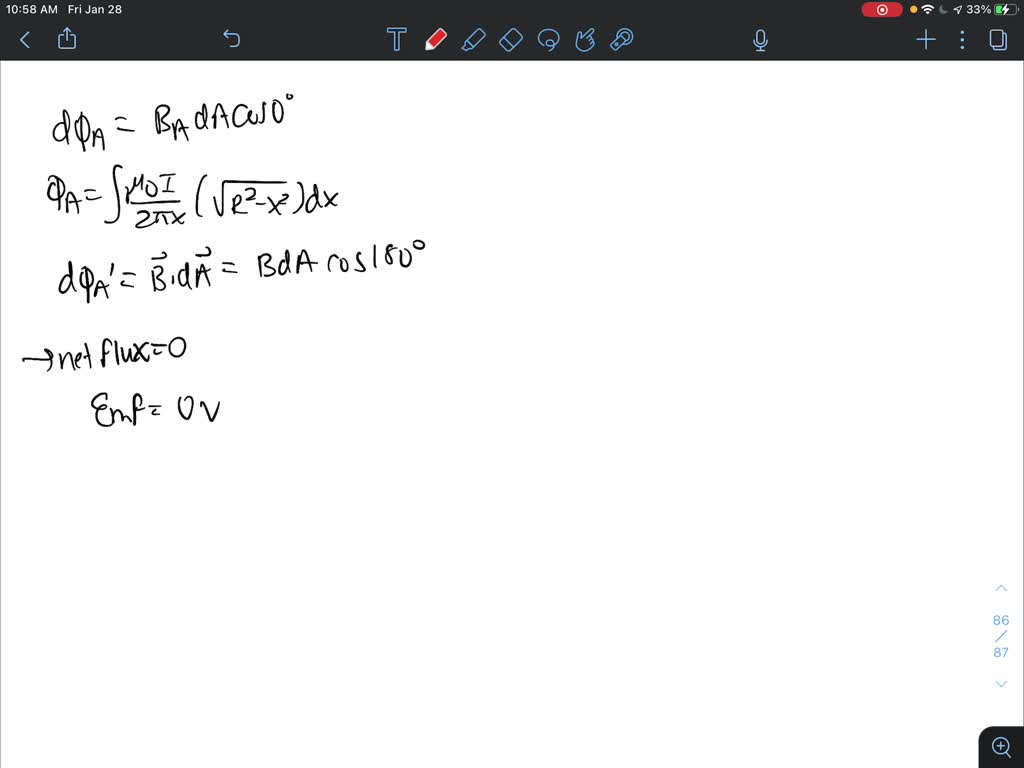 10:58 AM Fri Jan 28
33%
T
dφA = BA dA cos 0°
φA = ∫ μ0I/2πx (√R²-x²) dx
dφA' = B⃗ · dA⃗ = BdA cos 180°
→ net flux=0
Emf = 0 V
86
/
87